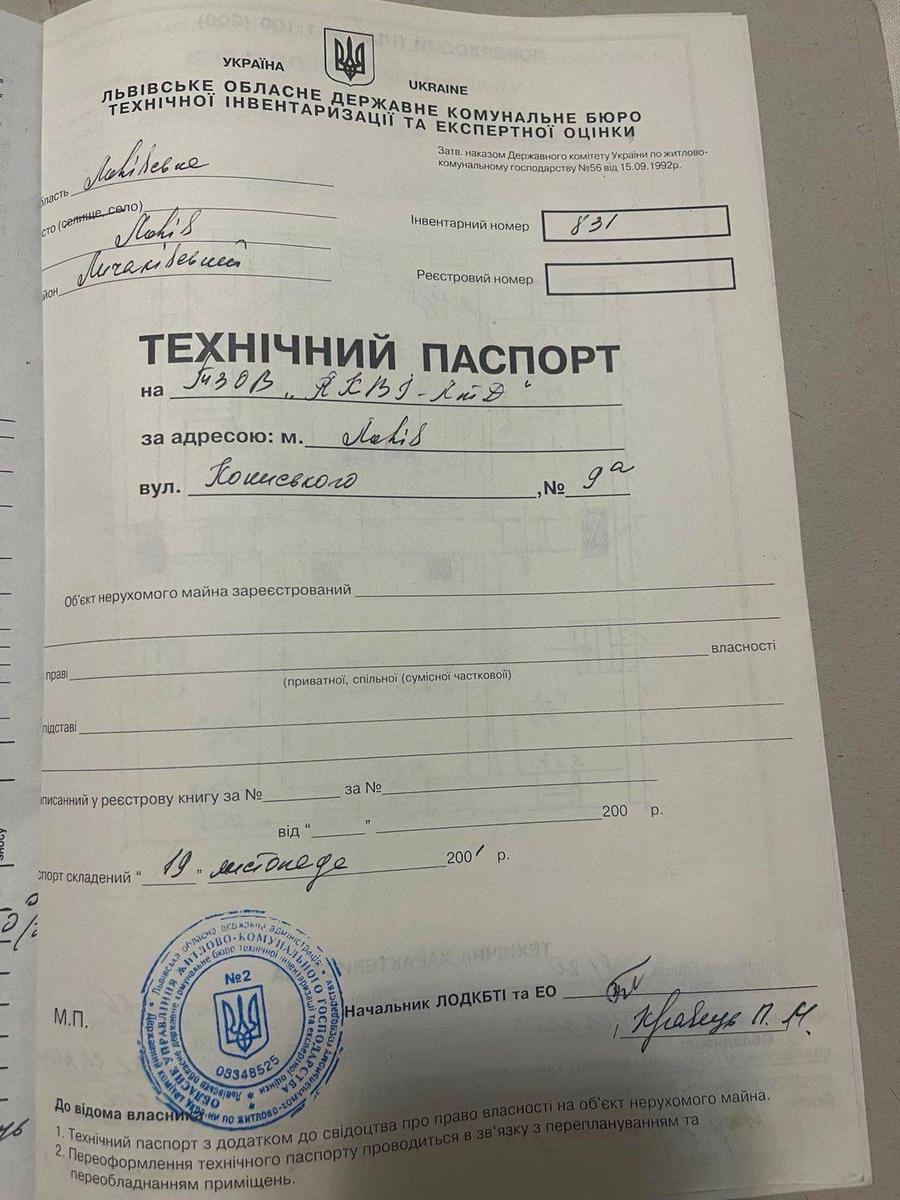 УКРАЇНА
UKRAINE
ЛЬВІВСЬКЕ ОБЛАСНЕ ДЕРЖАВНЕ КОМУНАЛЬНЕ БЮРО
ТЕХНІЧНОЇ ІНВЕНТАРИЗАЦІЇ ТА ЕКСПЕРТНОЇ ОЦІНКИ
Затв. наказом Державного комітету України по житлово-
комунальному господарству №56 від 15.09.1992р.
бласть Львівська
сто (селище, село)
Львів
йон Личаківський
Інвентарний номер 831
Реєстровий номер
ТЕХНІЧНИЙ ПАСПОРТ
на ТзОВ „АКВІ-ЛтД“
за адресою: м. Львів
вул. Кониського, № 9а
Об'єкт нерухомого майна зареєстрований
праві власності
(приватної, спільної (сумісної часткової)
підставі
аписанний у реєстрову книгу за № за №
від “ ” 200 р.
спорт складений “19” листопада 2001 р.
№2
03348525
М.П.
Начальник ЛОДКБТІ та ЕО
Кравець П. М.
До відома власника
1. Технічний паспорт з додатком до свідоцтва про право власності на об'єкт нерухомого майна.
2. Переоформлення технічного паспорту проводиться в зв'язку з переплануванням та
переобладнанням приміщень.